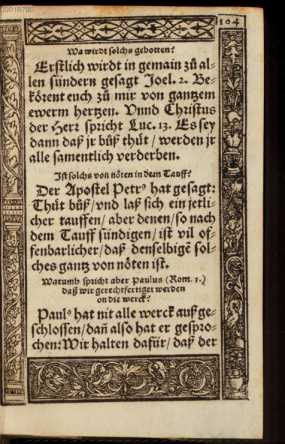 104
Wa wirdt solchs gebotten?
Erstlich wirdt in gemain zů al-
len sündern gesagt Joel. 2. Be-
körent euch zů mir von gantzem
ewerm hertzen. Vnnd Christus
der Herr spricht Luc. 13. Es sey
dann daß jr bůß thůt / werden jr
alle samentlich verderben.
Ist solchs von nöten in dem Tauff?
Der Apostel Petrꝰ hat gesagt:
Thůt bůß / vnd laß sich ein jetli-
cher tauffen / aber denen / so nach
dem Tauff sündigen / ist vil of-
fenbarlicher / daß denselbigē sol-
ches gantz von nöten ist.
Warumb spricht aber Paulus (Rom. 3.)
daß wir gerechtfertiget werden
on die werck?
Paulꝰ hat nit alle werck auß ge-
schlossen / dañ also hat er gespro-
chen: Wir halten dafür / daß der